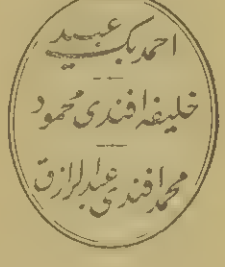 احمد بك عبيد
خليفه افندى محمود
محمد افندى عبد الرازق